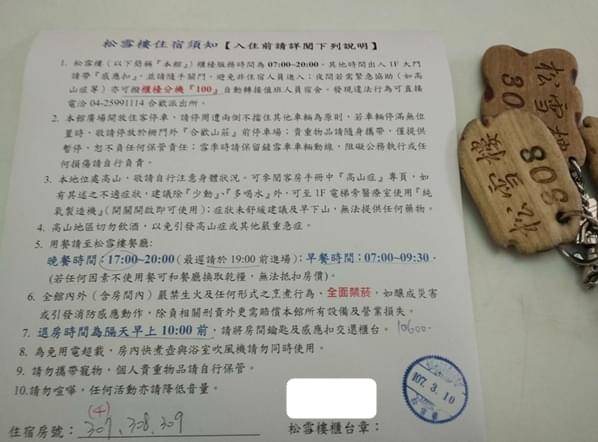 松雪樓住宿須知【入住前請詳閱下列說明】
1. 松雪樓（以下簡稱『本館』）櫃檯服務時間為 07:00~20:00。其他時間出入 1F 大門
請帶『感應扣』，並請隨手關門，避免非住宿人員進入；夜間若需緊急協助（如高
山症等）亦可撥櫃檯分機『100』自動轉接值班人員宿舍。發現違法行為可直接
電洽 04-25991114 合歡派出所。
2. 本館廣場開放住客停車，請停周邊而側不擋住其他車輛為原則，若車輛停滿無位
置時，敬請停放於柵門外『合歡山莊』前停車場；貴重物品請隨身攜帶，僅提供
暫停，恕不負任何保管責任；雪車時請保留鏟雪車車輛動線，阻礙公務執行或任
何損傷請自行負責。
3. 本地位處高山，敬請自行注意身體狀況。可參閱客房手冊中『高山症』專頁，如
有其述之不適症狀，建議除『少動』、『多喝水』外，可至 1F 電梯旁醫療室使用『純
氧製造機』（開關開啟即可使用）；症狀未舒緩建議及早下山，無法提供任何藥物。
4. 高山地區切勿飲酒，以免引發高山症或其他嚴重急症。
5. 用餐請至松雪樓餐廳：
晚餐時間：17:00~20:00（最遲請於 19:00 前進場）；早餐時間：07:00~09:30。
（若任何因素不使用餐可和餐廳換取乾糧，無法抵扣房價）。
6. 全館內外（含房間內）嚴禁生火及任何形式之烹煮行為，全面禁菸，如釀成災害
或引發消防感應動作，除負相關刑責外更需賠償本館所有設備及營業損失。
7. 退房時間為隔天早上 10:00 前，請將房間鑰匙及感應扣交還櫃台。
8. 為免用電超載，房內快煮壺與浴室吹風機請勿同時使用。
9. 請勿攜帶寵物，個人貴重物品請自行保管。
10.請勿喧嘩，任何活動亦請降低音量。
(4)
住宿房號：307、308、309
松雪樓櫃台章：
107. 3. 10
松雪樓
80
松雪樓
308